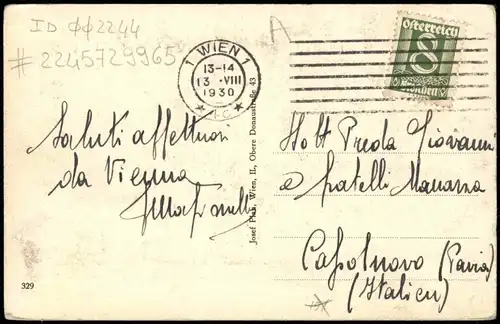 ID ФФ2244
# 2245729965
A
1 WIEN 1
13-14
13 · VIII
1930
Österreich
8
Groschen
Saluti affettuosi
da Vienna
Josef Plak, Wien, II., Obere Donaustraße 43
Dott Preda Giovanni
e fratelli
Capolnovo (Pavia)
(Italien)
329